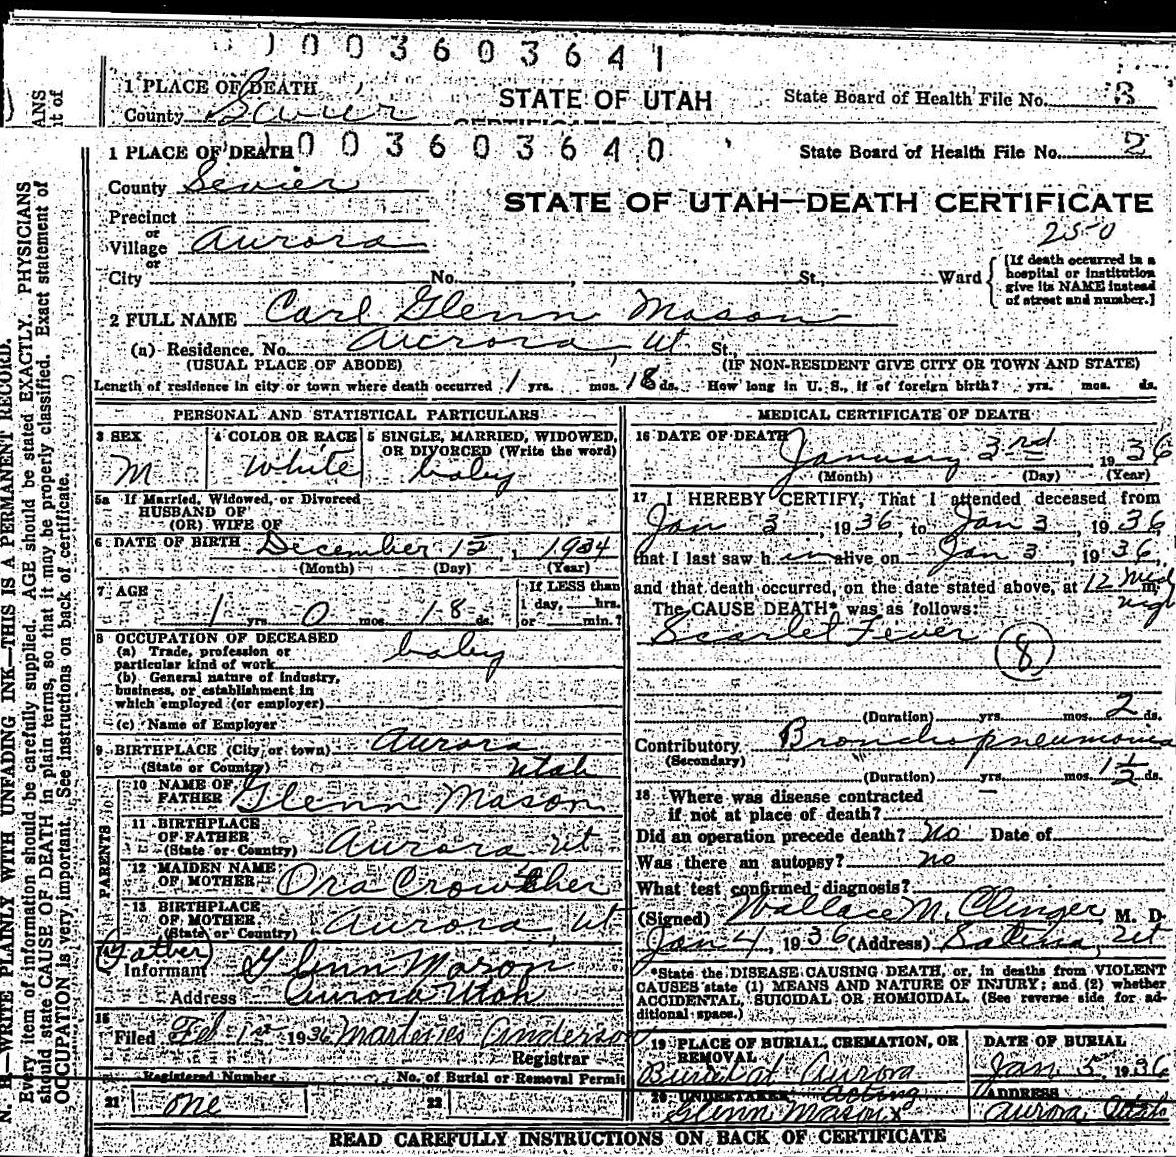 0 0 3 6 0 3 6 4 1
1 PLACE OF DEATH
County Sevier
STATE OF UTAH
State Board of Health File No. 3
0 0 3 6 0 3 6 4 0
1 PLACE OF DEATH
State Board of Health File No. 2
County Sevier
STATE OF UTAH—DEATH CERTIFICATE
Precinct
or
Village Aurora
or
250
City No. , St., Ward
[If death occurred in a hospital or institution give its NAME instead of street and number.]
2 FULL NAME Carl Glenn Mason
(a) Residence. No. Aurora, Ut St.
(USUAL PLACE OF ABODE) (IF NON-RESIDENT GIVE CITY OR TOWN AND STATE)
Length of residence in city or town where death occurred 1 yrs. mos. 18 ds. How long in U. S., if of foreign birth? yrs. mos. ds.
PERSONAL AND STATISTICAL PARTICULARS
3 SEX
M
4 COLOR OR RACE
White
5 SINGLE, MARRIED, WIDOWED, OR DIVORCED (Write the word)
baby
5a If Married, Widowed, or Divorced
HUSBAND OF
(OR) WIFE OF
6 DATE OF BIRTH December 15, 1934
(Month) (Day) (Year)
7 AGE
1 yrs. 0 mos. 18 ds.
If LESS than
1 day, hrs.
or min.?
8 OCCUPATION OF DECEASED
(a) Trade, profession or
particular kind of work baby
(b) General nature of industry,
business, or establishment in
which employed (or employer)
(c) Name of Employer
9 BIRTHPLACE (City or town) Aurora
(State or Country) Utah
PARENTS
10 NAME OF
FATHER Glenn Mason
11 BIRTHPLACE
OF FATHER
(State or Country) Aurora Ut
12 MAIDEN NAME
OF MOTHER Ora Crowther
13 BIRTHPLACE
OF MOTHER
(State or Country) Aurora, Ut
14 (Father)
Informant Glenn Mason
Address Aurora Utah
15
Filed Feb 1st 1936 Anderson
Registrar
Registered Number No. of Burial or Removal Permit
21 one 22
MEDICAL CERTIFICATE OF DEATH
16 DATE OF DEATH
January 3rd, 1936
(Month) (Day) (Year)
17 I HEREBY CERTIFY, That I attended deceased from
Jan 3, 1936, to Jan 3, 1936,
that I last saw h im alive on Jan 3, 1936,
and that death occurred, on the date stated above, at 12 Mid m.
night
The CAUSE DEATH* was as follows:
Scarlet Fever
8
(Duration) yrs. mos. 2 ds.
Contributory Bronchopneumonia
(Secondary)
(Duration) yrs. mos. 1 1/2 ds.
18 Where was disease contracted
if not at place of death?
Did an operation precede death? no Date of
Was there an autopsy? no
What test confirmed diagnosis?
(Signed) Wallace M. Clinger, M. D.
Jan 4, 1936 (Address) Salina, Ut
*State the DISEASE CAUSING DEATH, or, in deaths from VIOLENT
CAUSES state (1) MEANS AND NATURE OF INJURY; and (2) whether
ACCIDENTAL, SUICIDAL OR HOMICIDAL. (See reverse side for ad-
ditional space.)
19 PLACE OF BURIAL, CREMATION, OR
REMOVAL
Burial at Aurora
DATE OF BURIAL
Jan 5, 1936
20 UNDERTAKER acting
Glenn Mason x
ADDRESS
Aurora Utah
READ CAREFULLY INSTRUCTIONS ON BACK OF CERTIFICATE
ANS
it of
N. B.—WRITE PLAINLY WITH UNFADING INK—THIS IS A PERMANENT RECORD.
Every item of information should be carefully supplied. AGE should be stated EXACTLY. PHYSICIANS
should state CAUSE OF DEATH in plain terms, so that it may be properly classified. Exact statement of
OCCUPATION is very important. See instructions on back of certificate.